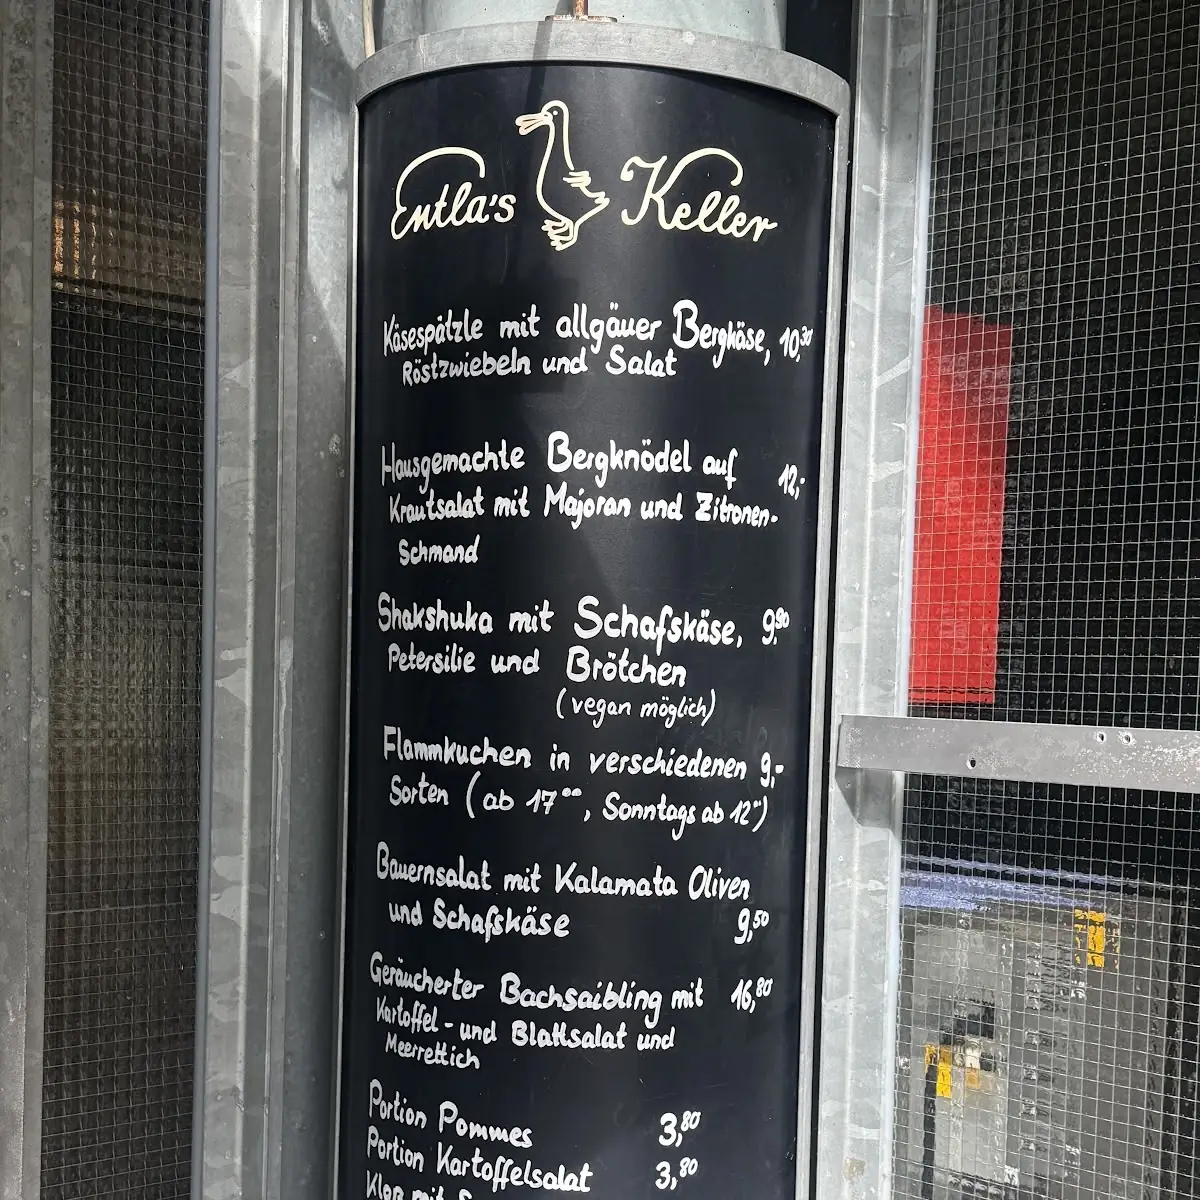 Entla's Keller
Käsespätzle mit allgäuer Bergkäse, 10,30
Röstzwiebeln und Salat
Hausgemachte Bergknödel auf 12,-
Krautsalat mit Majoran und Zitronen-
Schmand
Shakshuka mit Schafskäse, 9,90
Petersilie und Brötchen
(vegan möglich)
Flammkuchen in verschiedenen 9,-
Sorten (ab 17⁰⁰, Sonntags ab 12⁰⁰)
Bauernsalat mit Kalamata Oliven
und Schafskäse 9,50
Geräucherter Bachsaibling mit 16,80
Kartoffel- und Blattsalat und
Meerrettich
Portion Pommes 3,80
Portion Kartoffelsalat 3,80
Kloß mit